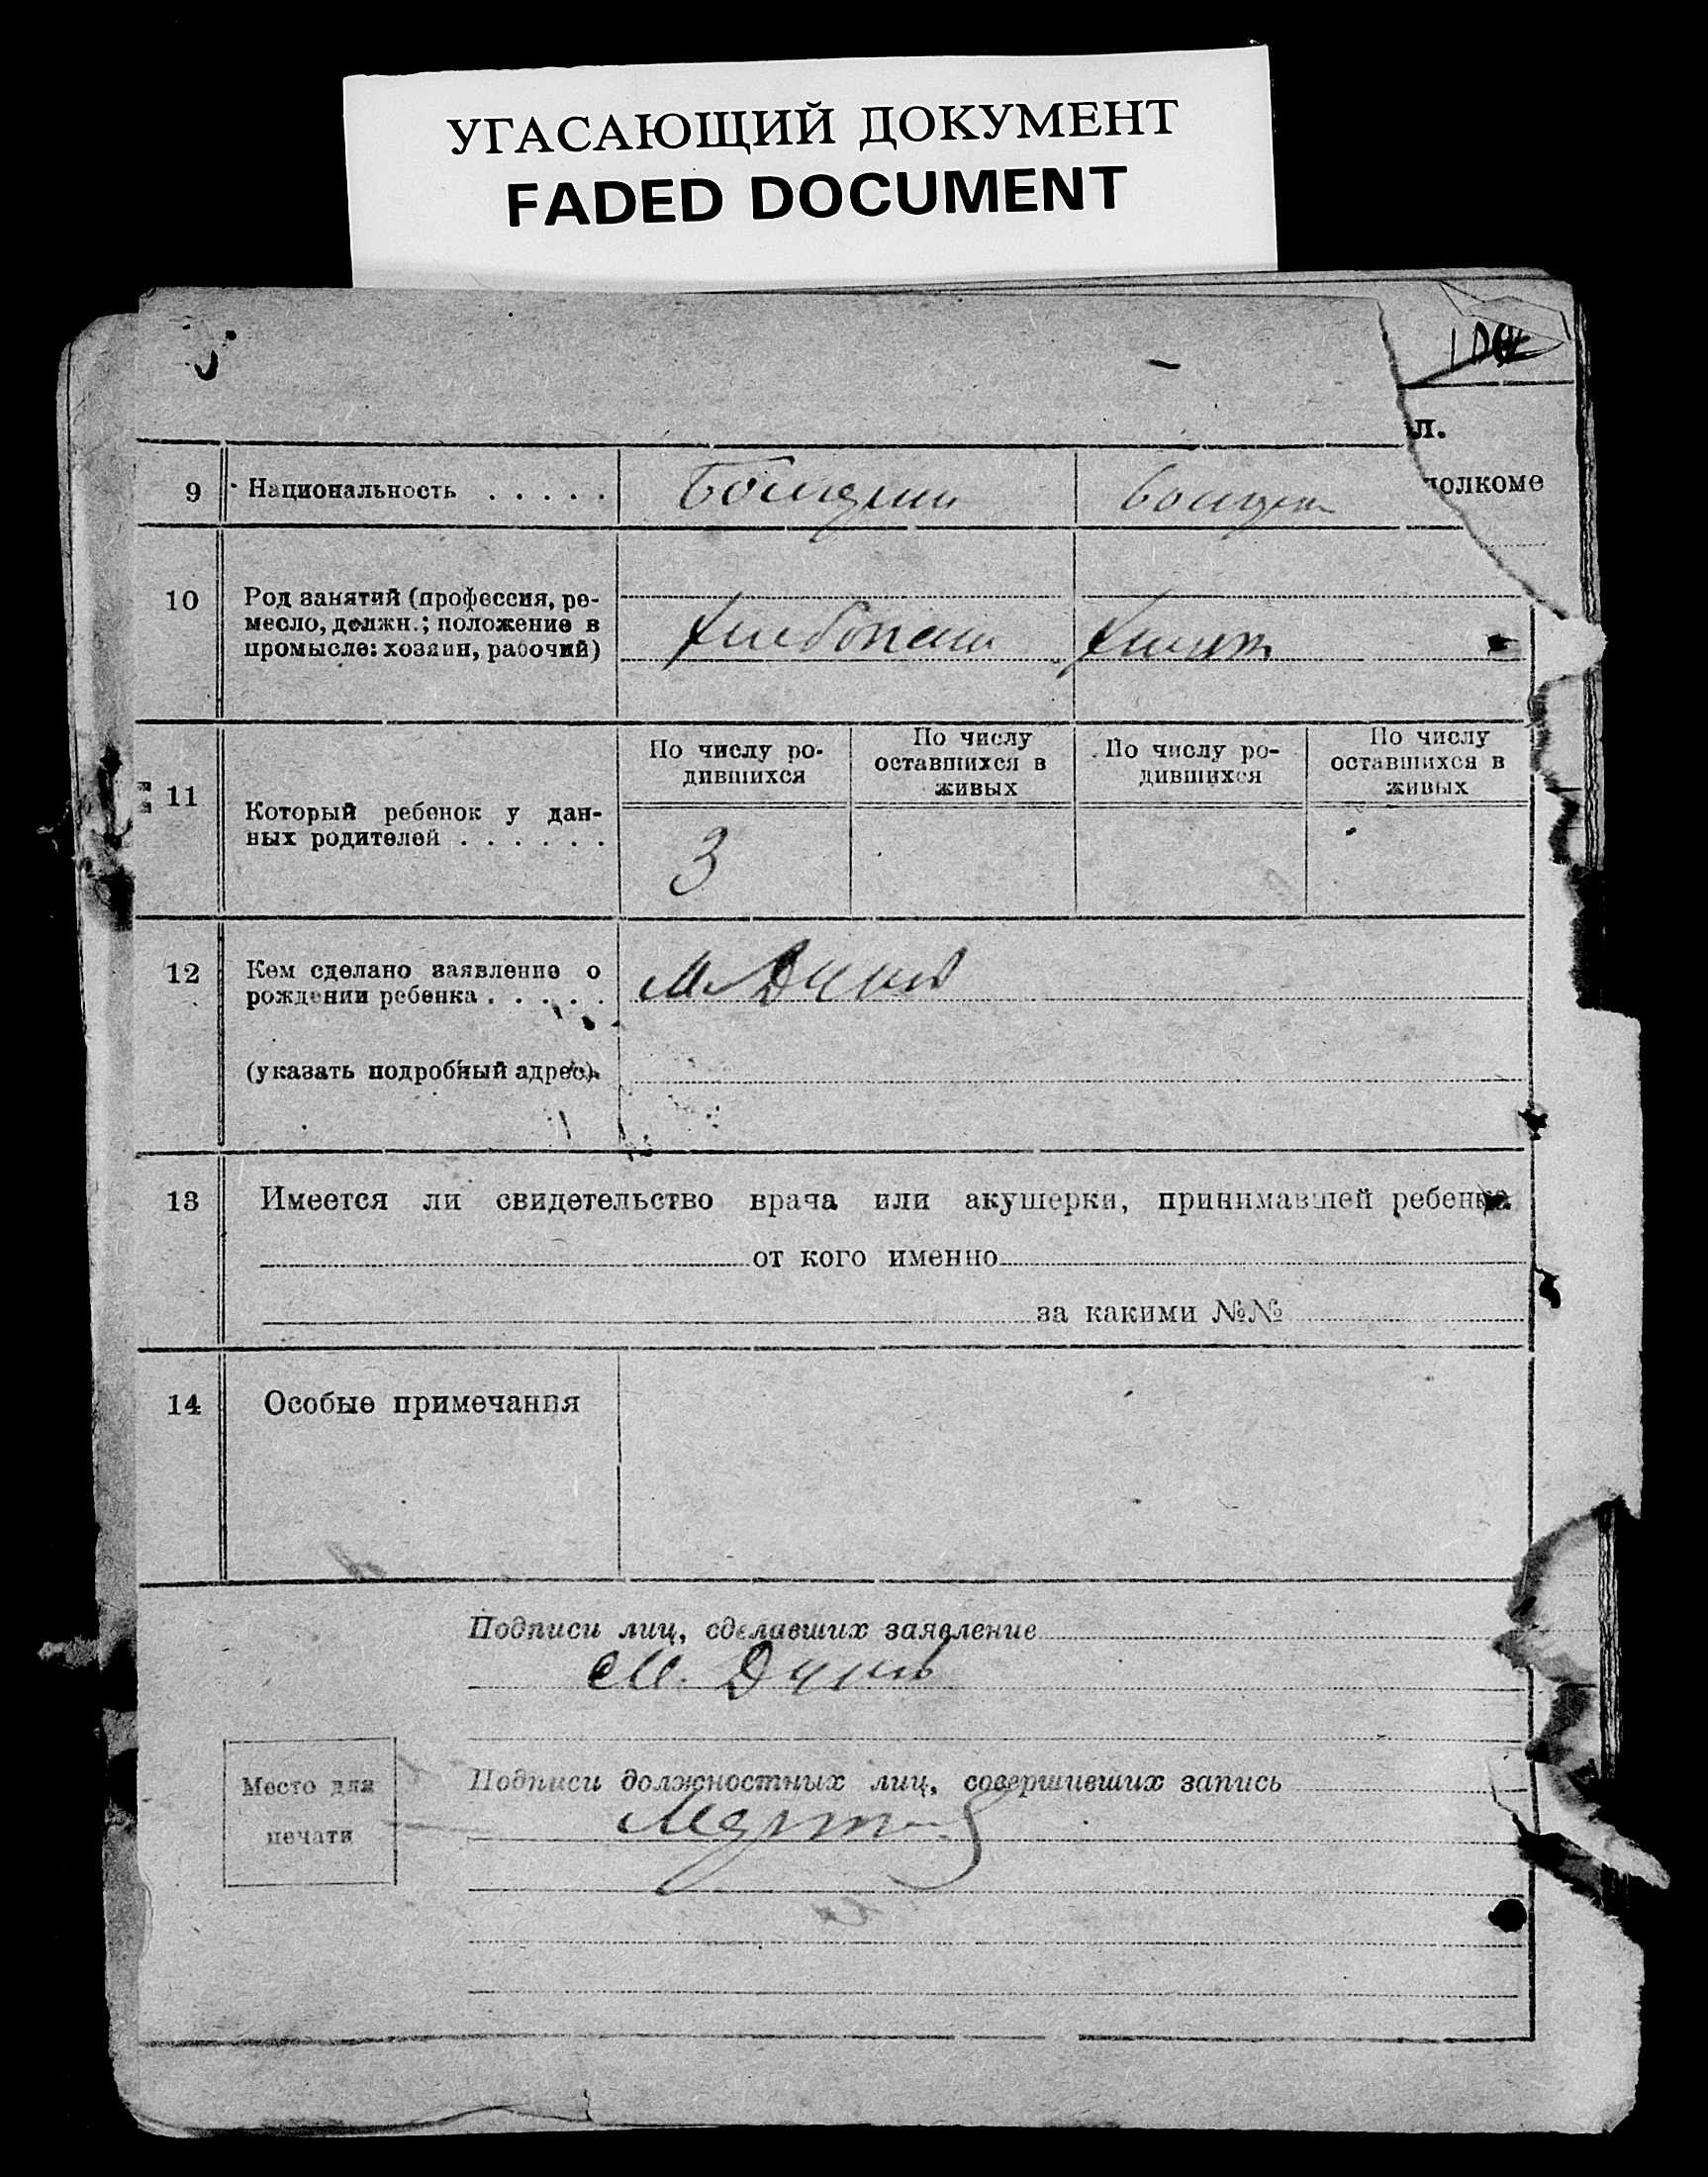 УГАСАЮЩИЙ ДОКУМЕНТ
FADED DOCUMENT
л.
полкоме
9 Национальность . . . . .
10 Род занятий (профессия, ре-
месло, должн.; положение в
промысле: хозяин, рабочий)
11 Который ребенок у дан-
ных родителей . . . . . .
По числу ро-
дившихся
По числу
оставшихся в
живых
По числу ро-
дившихся
По числу
оставшихся в
живых
3
12 Кем сделано заявление о
рождении ребенка . . . . .
М.
(указать подробный адрес).
13 Имеется ли свидетельство врача или акушерки, принимавшей ребенка
от кого именно
за какими №№
14 Особые примечания
Подписи лиц, сделавших заявление
М.
Место для
печати
Подписи должностных лиц, совершивших запись